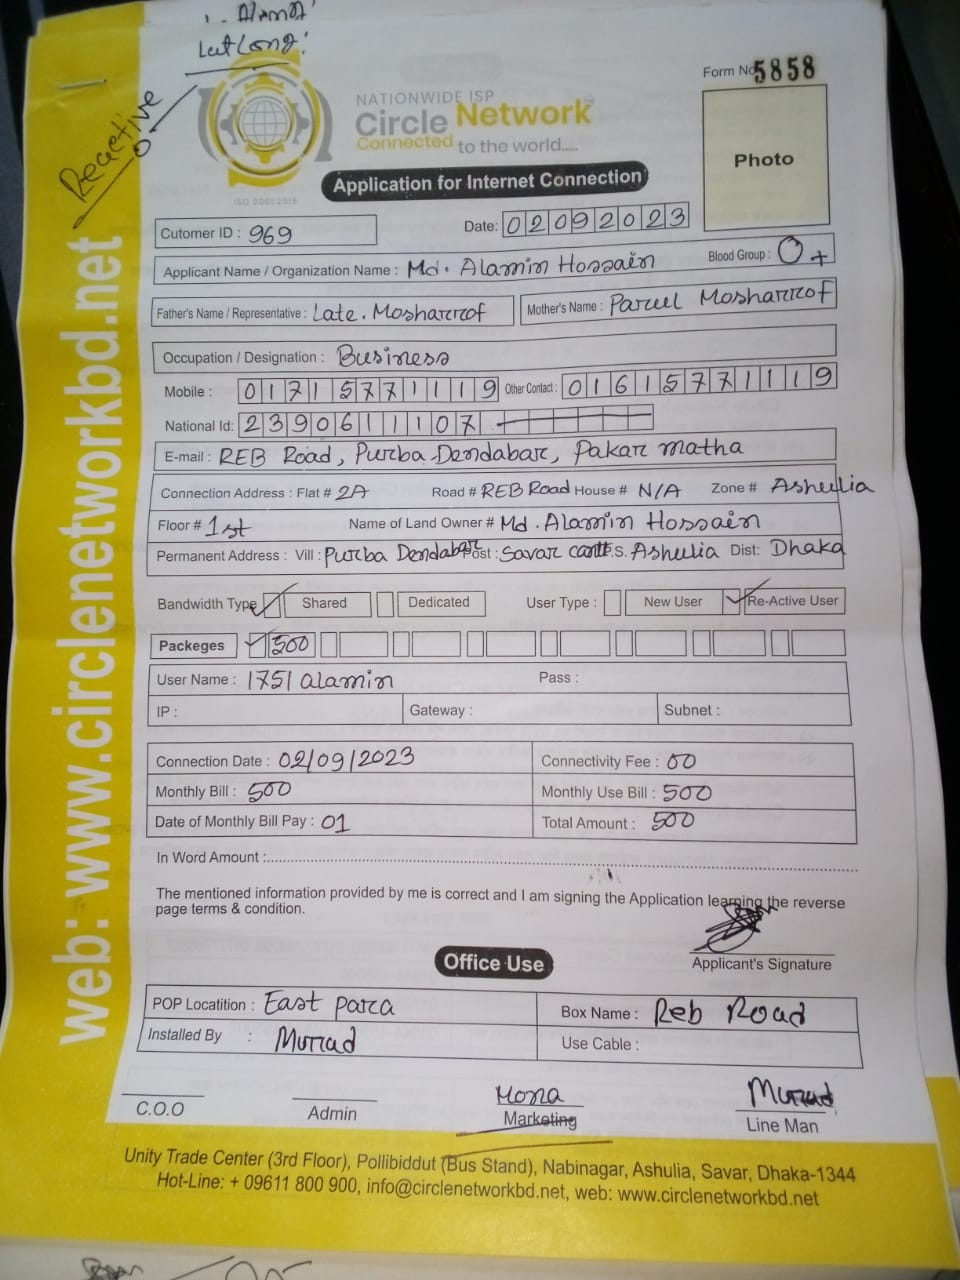 Alamin
Lat Long:
Reactive
Form No 5858
NATIONWIDE ISP
Circle Network
Connected to the world.....
ISO 9001:2015
Photo
Application for Internet Connection
Cutomer ID : 969 Date: 02092023
Applicant Name / Organization Name : Md. Alamin Hossain Blood Group : O+
Father's Name / Representative : Late. Mosharrof Mother's Name : Parul Mosharrof
Occupation / Designation : Business
Mobile : 01715771119 Other Contact : 01615771119
National Id: 2390611107
E-mail : REB Road, Purba Dendabar, Pakar matha
Connection Address : Flat # 2A Road # REB Road House # N/A Zone # Ashulia
Floor # 1st Name of Land Owner # Md. Alamin Hossain
Permanent Address : Vill : Purba Dendabar Post : Savar cantt P.S. Ashulia Dist: Dhaka
Bandwidth Type Shared Dedicated User Type : New User Re-Active User
Packeges 500
User Name : 1751 alamin Pass :
IP : Gateway : Subnet :
Connection Date : 02/09/2023 Connectivity Fee : 00
Monthly Bill : 500 Monthly Use Bill : 500
Date of Monthly Bill Pay : 01 Total Amount : 500
In Word Amount :
The mentioned information provided by me is correct and I am signing the Application learning the reverse
page terms & condition.
Applicant's Signature
Office Use
POP Locatition : East Para Box Name : Reb Road
Installed By : Murad Use Cable :
Mona Murad
C.O.O Admin Marketing Line Man
Unity Trade Center (3rd Floor), Pollibiddut (Bus Stand), Nabinagar, Ashulia, Savar, Dhaka-1344
Hot-Line: + 09611 800 900, info@circlenetworkbd.net, web: www.circlenetworkbd.net
web: www.circlenetworkbd.net